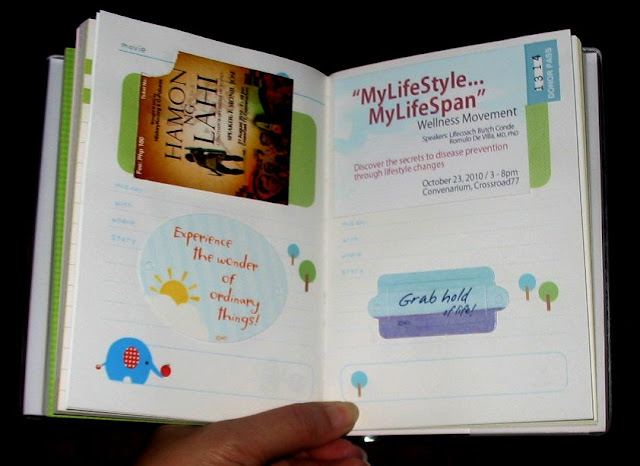 movie
Fee: Php 100
HAMON
NG
LAHI
with
where
story
Experience
the wonder
of
ordinary
things!
"MyLifeStyle...
MyLifeSpan"
Wellness Movement
Speakers: Lifecoach Butch Conde
Romulo De Villa, MD, PhD
Discover the secrets to disease prevention
through lifestyle changes
October 23, 2010 / 3 - 8pm
Convenarium, Crossroad77
1314
DONOR PASS
with
where
story
Grab hold
of life!